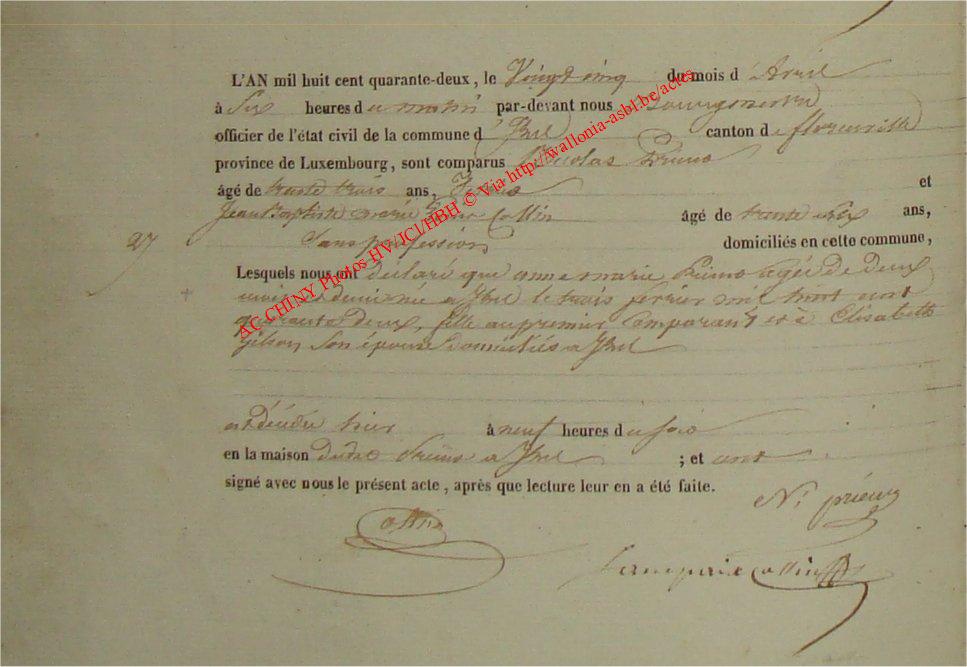 L'AN mil huit cent quarante-deux, le Vingt cinq du mois d'Avril
à Six heures du matin par-devant nous Bourgmestre
officier de l'état civil de la commune d'Izel canton de florenville
province de Luxembourg, sont comparus Nicolas
âgé de trente trois ans, et
Jean Baptiste Collin âgé de trente ans,
27 Sans profession domiciliés en cette commune,
Lesquels nous ont déclaré que anne marie agée de deux
mois née a Izel le trois février mil huit cent
quarante deux, fille au premier Comparant et à Elisabeth
Gilson Son épouse Domiciliés a Izel
est décédée hier à neuf heures du soir
en la maison dudit a Izel ; et ont
signé avec nous le présent acte, après que lecture leur en a été faite.
Collin
AC CHINY Photos HV/JCI/HBH © Via http://wallonia-asbl.be/actes